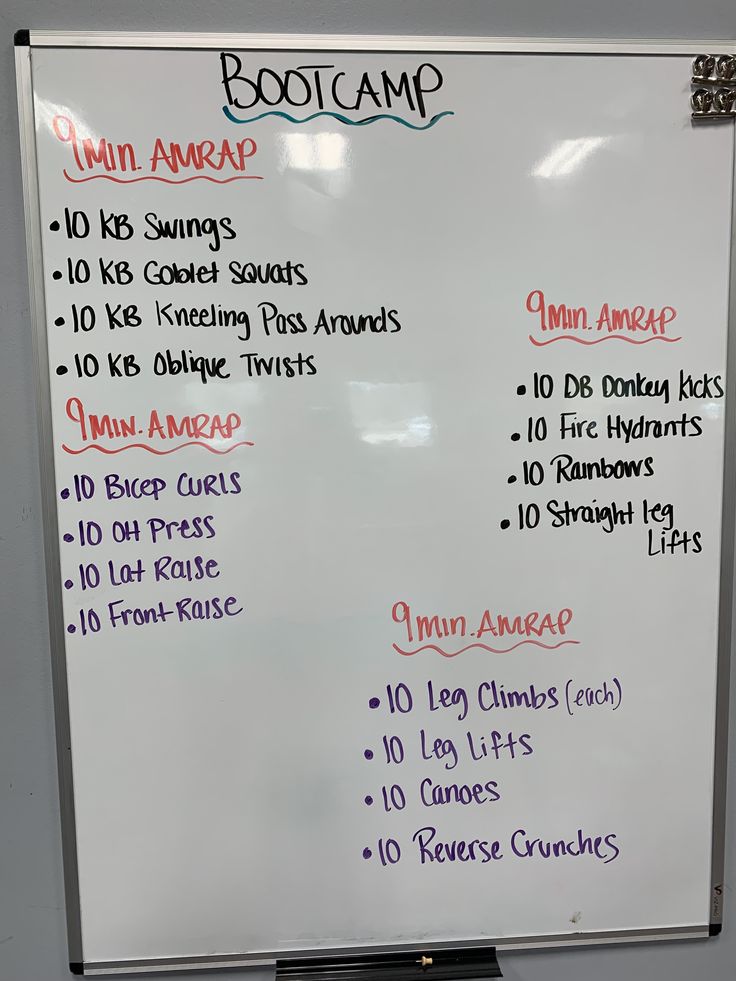 BOOTCAMP
9 Min. AMRAP
• 10 KB Swings
• 10 KB Goblet Squats
• 10 KB Kneeling Pass Arounds
• 10 KB Oblique Twists
9 Min. AMRAP
• 10 Bicep Curls
• 10 OH Press
• 10 Lat Raise
• 10 Front Raise
9 Min. AMRAP
• 10 DB Donkey Kicks
• 10 Fire Hydrants
• 10 Rainbows
• 10 Straight leg
Lifts
9 Min. AMRAP
• 10 Leg Climbs (each)
• 10 Leg Lifts
• 10 Canoes
• 10 Reverse Crunches